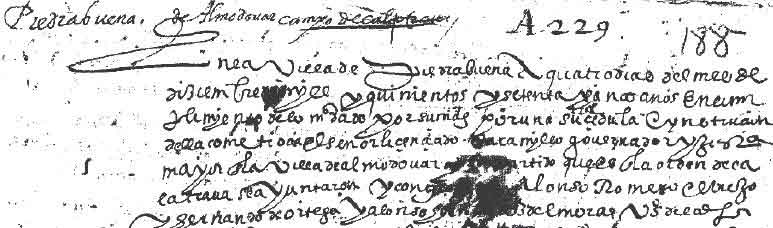 Piedrabuena. de Almodovar campo de calatrava A 229 188
En la Villa de Piedrabuena A quatro dias del mes de
diziembre de mill y quinientos y setenta y cinco años En cum
plimyento de lo mdado por su md por una su cedula E ynstrucion
della cometida al señor licenciado governador y justizia
mayor de la Villa de almodovar partido ques de la orden de ca
latrava se ayuntaron y Alonso Romero el viejo
y hernando de ortega y alonso de mora Vs desta